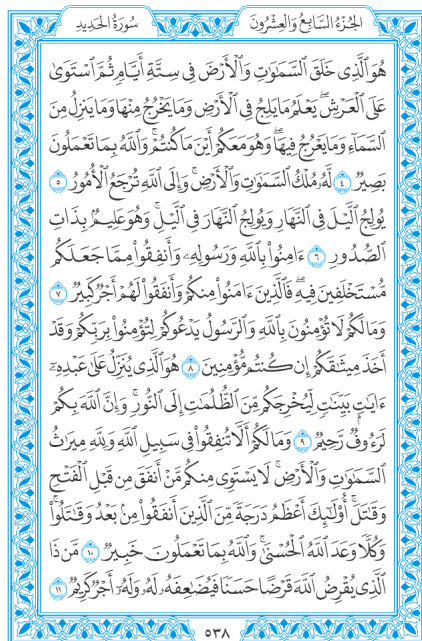 الجُزْءُ السَّابِعُ وَالعِشْرُونَ سُورَةُ الحَدِيدِ
هُوَ ٱلَّذِى خَلَقَ ٱلسَّمَٰوَٰتِ وَٱلْأَرْضَ فِى سِتَّةِ أَيَّامٍ ثُمَّ ٱسْتَوَىٰ
عَلَى ٱلْعَرْشِ ۚ يَعْلَمُ مَا يَلِجُ فِى ٱلْأَرْضِ وَمَا يَخْرُجُ مِنْهَا وَمَا يَنزِلُ مِنَ
ٱلسَّمَآءِ وَمَا يَعْرُجُ فِيهَا ۖ وَهُوَ مَعَكُمْ أَيْنَ مَا كُنتُمْ ۚ وَٱللَّهُ بِمَا تَعْمَلُونَ
بَصِيرٌ ٤ لَّهُۥ مُلْكُ ٱلسَّمَٰوَٰتِ وَٱلْأَرْضِ ۚ وَإِلَى ٱللَّهِ تُرْجَعُ ٱلْأُمُورُ ٥
يُولِجُ ٱلَّيْلَ فِى ٱلنَّهَارِ وَيُولِجُ ٱلنَّهَارَ فِى ٱلَّيْلِ ۚ وَهُوَ عَلِيمٌۢ بِذَاتِ
ٱلصُّدُورِ ٦ ءَامِنُوا۟ بِٱللَّهِ وَرَسُولِهِۦ وَأَنفِقُوا۟ مِمَّا جَعَلَكُم
مُّسْتَخْلَفِينَ فِيهِ ۖ فَٱلَّذِينَ ءَامَنُوا۟ مِنكُمْ وَأَنفَقُوا۟ لَهُمْ أَجْرٌ كَبِيرٌ ٧
وَمَا لَكُمْ لَا تُؤْمِنُونَ بِٱللَّهِ ۙ وَٱلرَّسُولُ يَدْعُوكُمْ لِتُؤْمِنُوا۟ بِرَبِّكُمْ وَقَدْ
أَخَذَ مِيثَٰقَكُمْ إِن كُنتُم مُّؤْمِنِينَ ٨ هُوَ ٱلَّذِى يُنَزِّلُ عَلَىٰ عَبْدِهِۦٓ
ءَايَٰتٍۭ بَيِّنَٰتٍ لِّيُخْرِجَكُم مِّنَ ٱلظُّلُمَٰتِ إِلَى ٱلنُّورِ ۚ وَإِنَّ ٱللَّهَ بِكُمْ
لَرَءُوفٌ رَّحِيمٌ ٩ وَمَا لَكُمْ أَلَّا تُنفِقُوا۟ فِى سَبِيلِ ٱللَّهِ وَلِلَّهِ مِيرَٰثُ
ٱلسَّمَٰوَٰتِ وَٱلْأَرْضِ ۚ لَا يَسْتَوِى مِنكُم مَّنْ أَنفَقَ مِن قَبْلِ ٱلْفَتْحِ
وَقَٰتَلَ ۚ أُو۟لَٰٓئِكَ أَعْظَمُ دَرَجَةً مِّنَ ٱلَّذِينَ أَنفَقُوا۟ مِنۢ بَعْدُ وَقَٰتَلُوا۟ ۚ
وَكُلًّا وَعَدَ ٱللَّهُ ٱلْحُسْنَىٰ ۚ وَٱللَّهُ بِمَا تَعْمَلُونَ خَبِيرٌ ١٠ مَّن ذَا
ٱلَّذِى يُقْرِضُ ٱللَّهَ قَرْضًا حَسَنًا فَيُضَٰعِفَهُۥ لَهُۥ وَلَهُۥٓ أَجْرٌ كَرِيمٌ ١١
٥٣٨